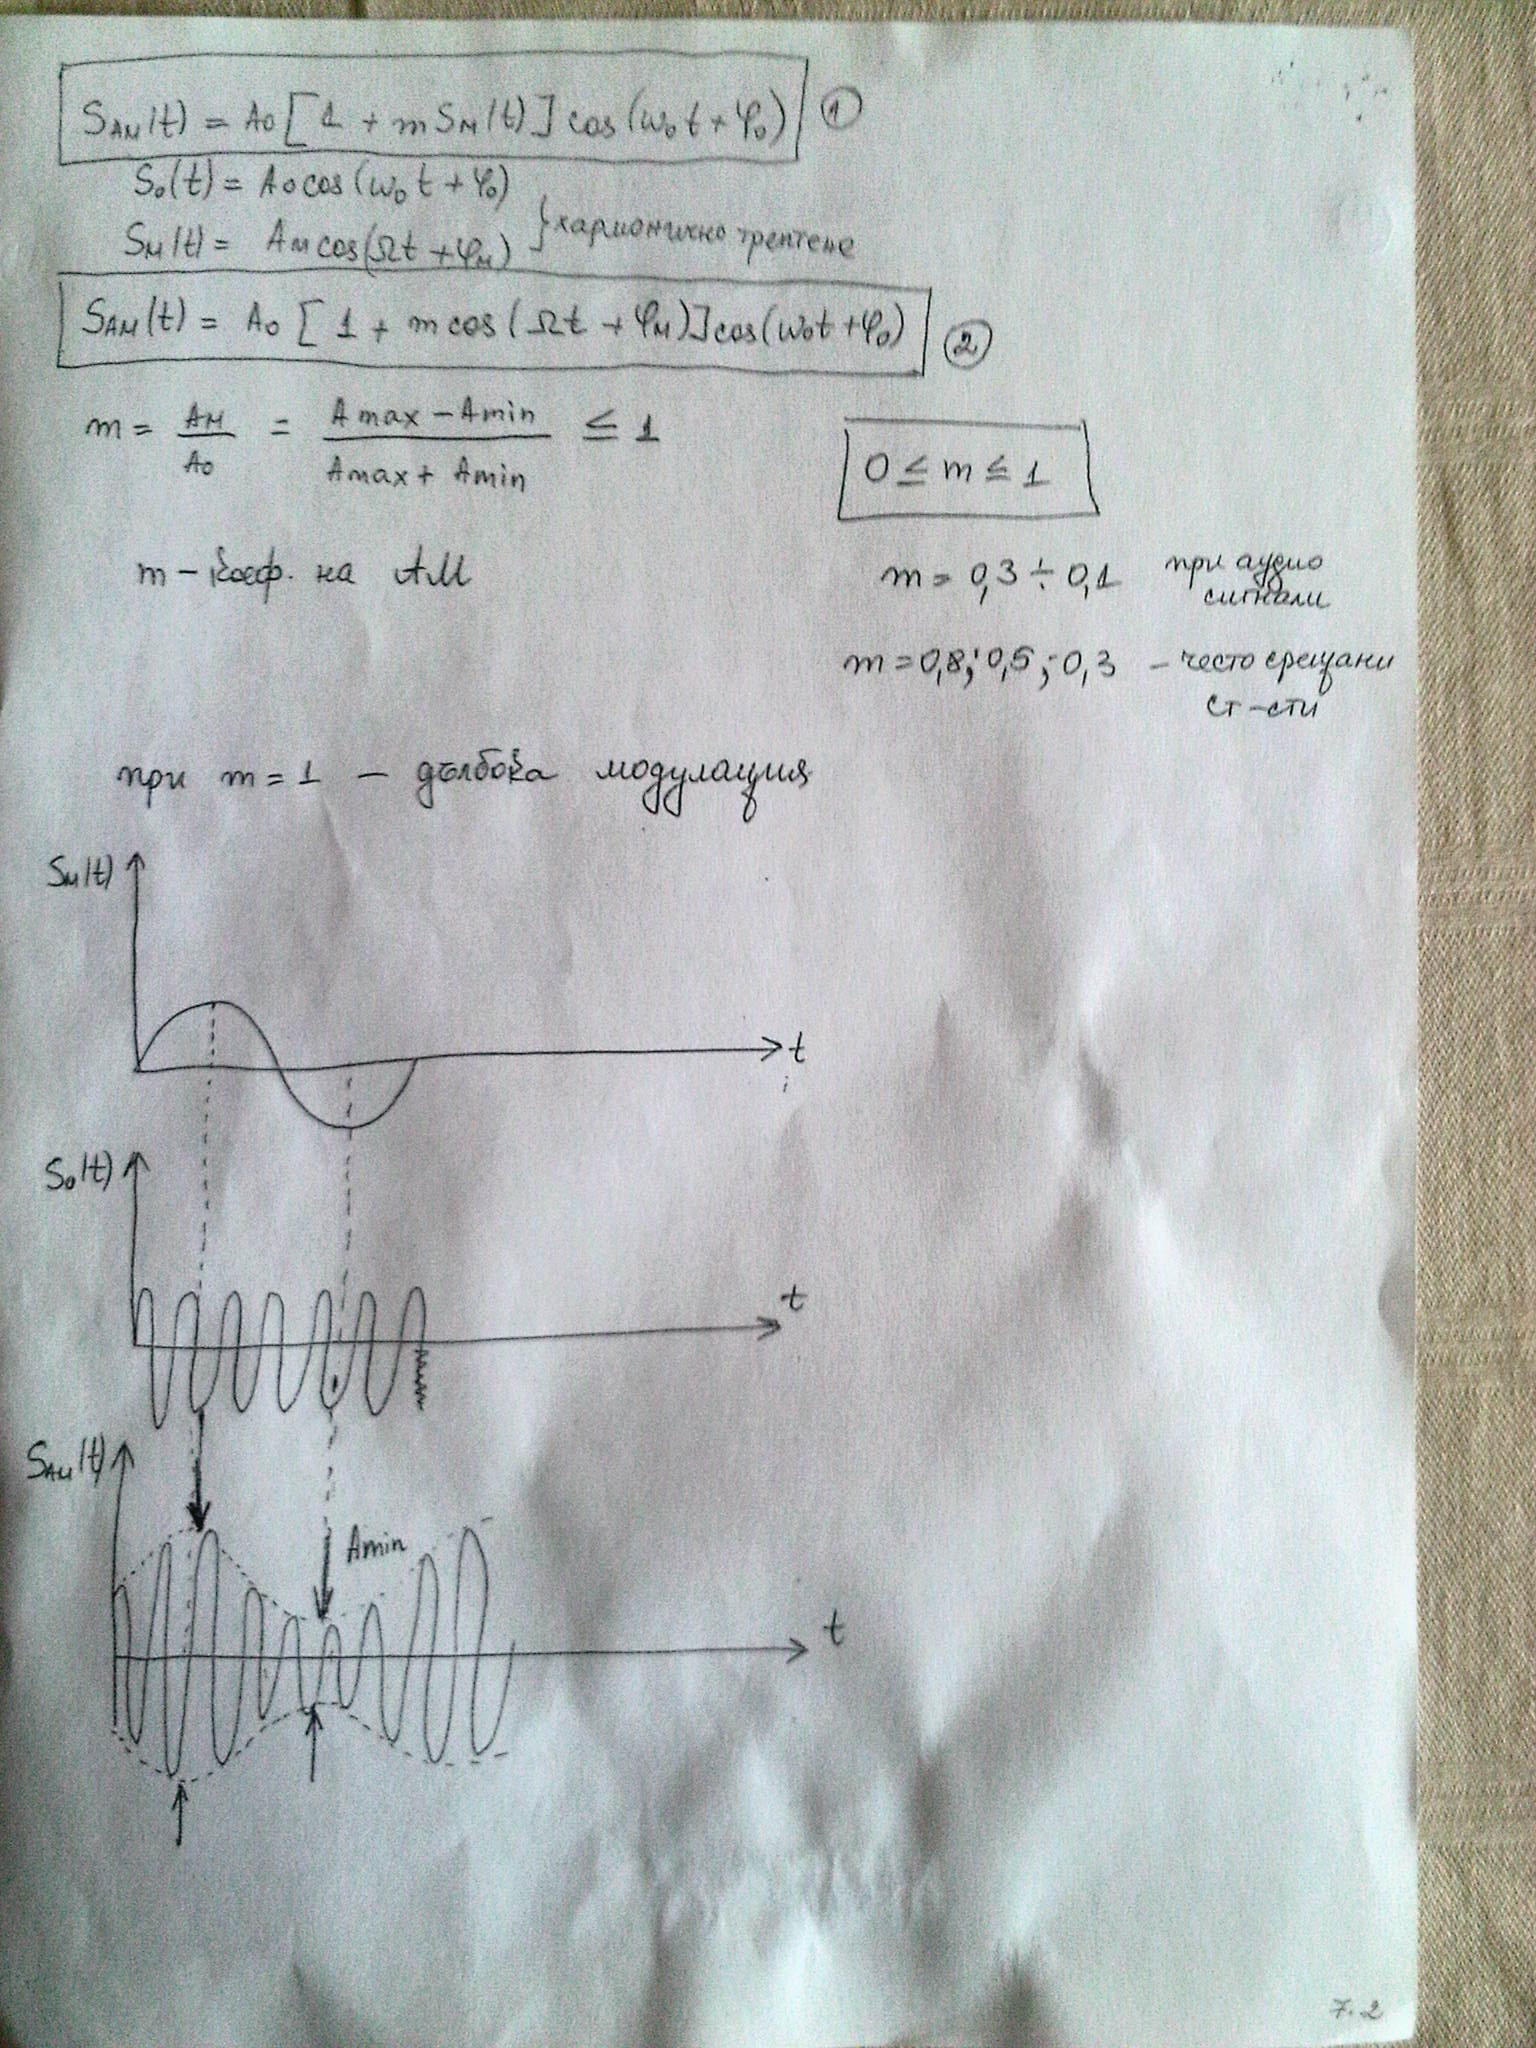 S_AM(t) = A_0 [ 1 + m S_M(t) ] cos(ω_0 t + φ_0) ①
S_0(t) = A_0 cos(ω_0 t + φ_0)
S_M(t) = A_M cos(Ωt + φ_M) } хармонично трептене
S_AM(t) = A_0 [ 1 + m cos(Ωt + φ_M) ] cos(ω_0 t + φ_0) ②
m = A_M / A_0 = (A max − A min) / (A max + A min) ≤ 1
0 ≤ m ≤ 1
m – коеф. на АМ
m = 0,3 ÷ 0,1 при аудио
сигнали
m = 0,8; 0,5; 0,3 – често срещани
ст-сти
при m = 1 – дълбока модулация
S_M(t)
t
S_0(t)
t
S_AM(t)
Amin
t
7.2